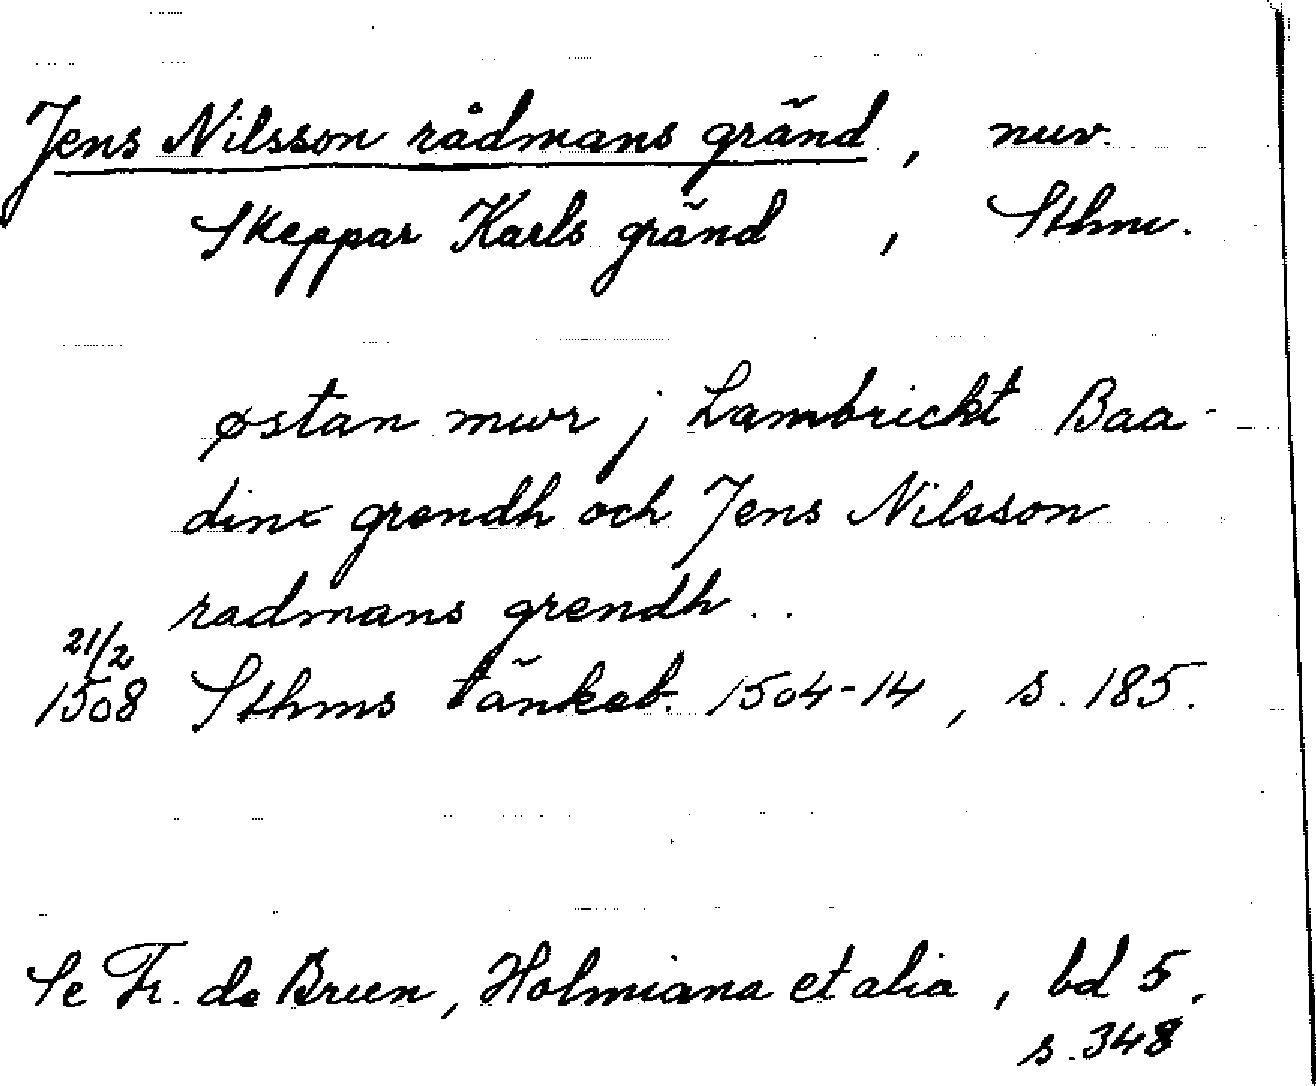 Jens Nilsson rådmans gränd, nuv.
Skeppar Karls gränd, Sthm.
østan mwr j Lambrickt Baa-
dinx grendh och Jens Nilsson
radmans grendh..
21/2
1508 Sthms tänkeb. 1504-14, s. 185.
Se Fr. de Brun, Holmiana et alia, bd 5,
s. 348